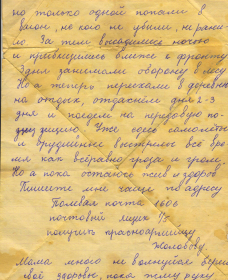 но только одной попали в
вагон, но кого не убили, не ранило
За тем высадились ночью
и придвинулись ближе к фронту
Здесь занимали оборону в лесу
Но а теперь переехали в деревню
на отдых, отдохнём дня 2-3
дня и поедем на передовую по-
зицию Уже здесь самолёты
и орудийные выстрелы всё вре
мя как всёравно гроза и гром.
Но а пока остаюсь жив и здоров
Пишите мне чаще по адресу
Полевая почта 1606
почтовый ящик 93
получить красноармейцу
Жолобову.
Мама много не волнуйся береги
своё здоровье, пока жму руку